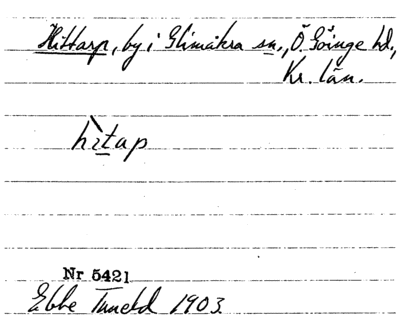 Hittarp, by i Glimåkra sn., Ö. Göinge hd.,
Kr. län.
hìtap
Nr 5421
Ebbe Tuneld 1903.